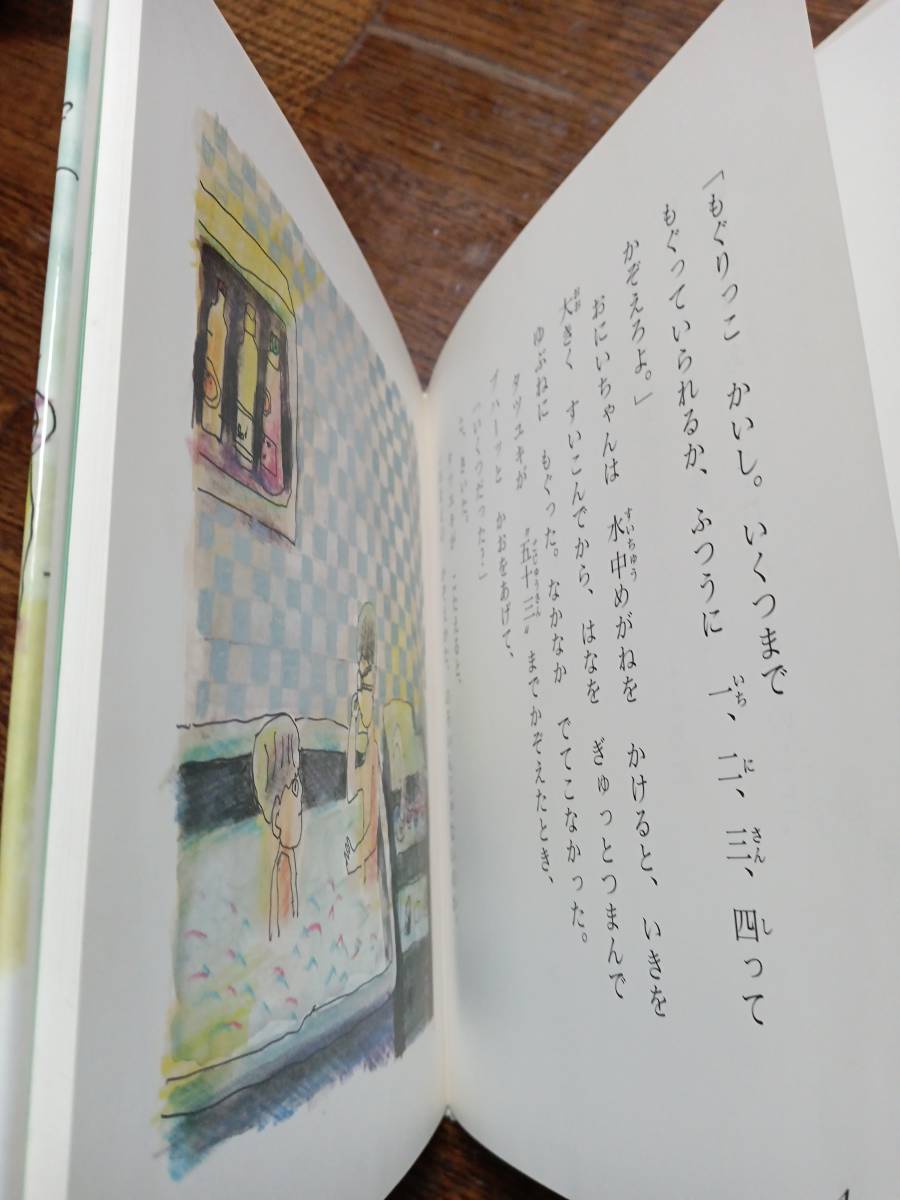 「もぐりっこ かいし。いくつまで
もぐっていられるか、ふつうに 一、二、三、四って
かぞえろよ。」
おにいちゃんは 水中めがねを かけると、いきを
大きく すいこんでから、はなを ぎゅっとつまんで
ゆぶねに もぐった。なかなか でてこなかった。
タツユキが “五十三” までかぞえたとき、
プハーッと かおをあげて、
「いくつだった?」
と、きいた。